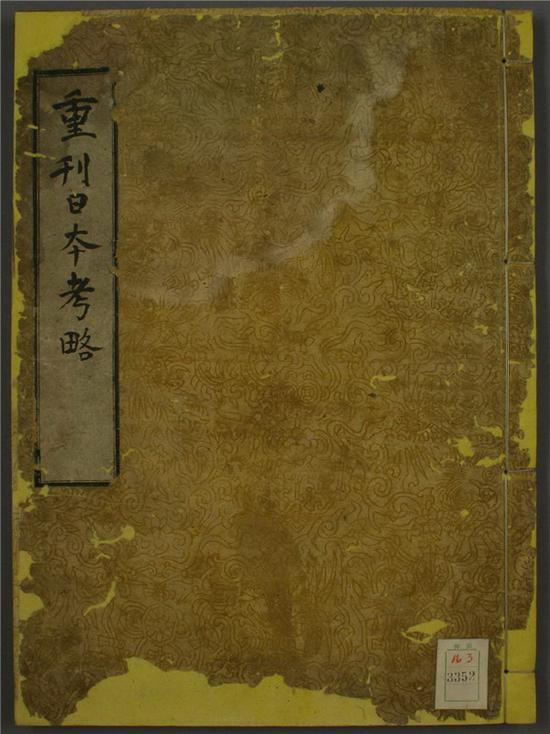 重刊日本考略
ル3
3352